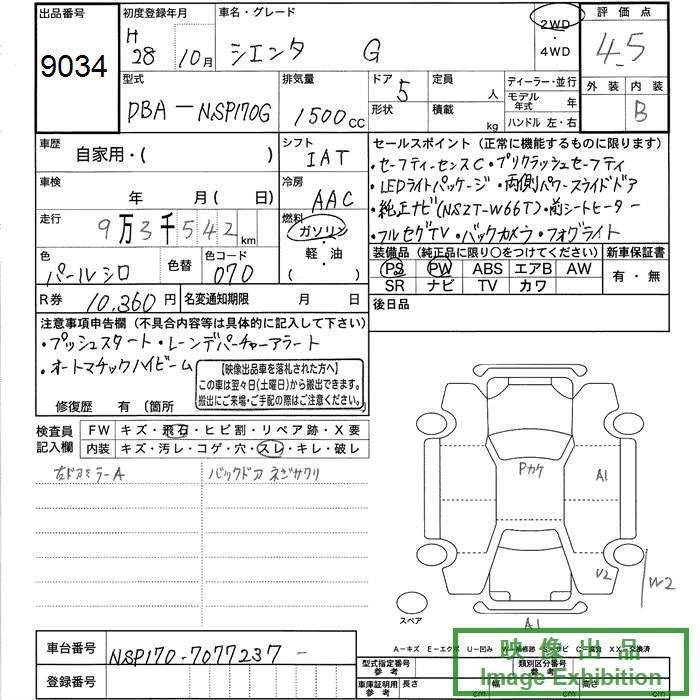 出品番号
9034
初度登録年月
H
28 10月
車名・グレード
シエンタ G
2WD
4WD
評価点
4.5
外装 内装
B
型式
DBA-NSP170G
排気量
1500cc
ドア 5
形状
定員 人
積載 kg
ディーラー・並行
モデル年式 年
ハンドル 左・右
車歴
自家用・( )
シフト
IAT
車検
年 月( 日)
冷房
AAC
走行
9万3千542km
燃料
ガソリン
・
軽・油
( )
色
パールシロ
色替
色コード
070
R券 10,360円
名変通知期限 月 日
セールスポイント(正常に機能するものに限ります)
・セーフティーセンスC・プリクラッシュセーフティ
・LEDライトパッケージ・両側パワースライドドア
・純正ナビ(NSZT-W66T)・前シートヒーター
・フルセグTV・バックカメラ・フォグライト
装備品(純正品に限り○をつけてください)
PS PW ABS エアB AW
SR ナビ TV カワ
新車保証書
有・無
後日品
注意事項申告欄(不具合内容等は具体的に記入して下さい)
・プッシュスタート・レーンデパーチャーアラート
・オートマチックハイビーム
【映像出品車を落札された方へ】
この車は翌々日(土曜日)から搬出できます。
搬出にご来場・ご手配の際はご注意ください。
修復歴 有(箇所
検査員
記入欄
FW キズ・飛石・ヒビ割・リペア跡・X要
内装 キズ・汚レ・コゲ・穴・スレ・キレ・破レ
左ドアミラーA
バックドア ネジサクリ
Pカケ
A1
U2
W2
スペア
A1
A-キズ E-エクボ U-凹み
XX-交換済
車台番号 NSP170-7077237-
登録番号
型式指定番号
参考
類別区分番号
参考
車庫証明用
参考
長さ cm
幅 cm
高さ cm
映像出品
Image Exhibition